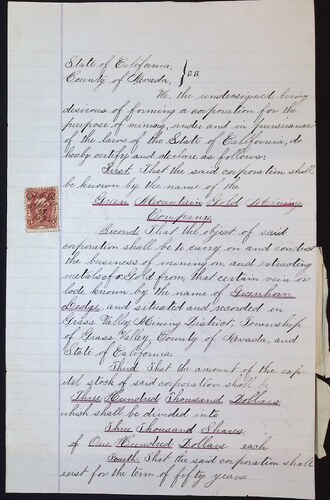 State of California,
County of Nevada. } SS
We, the undersigned being
desirous of forming a corporation for the
purpose of mining, under and in pursuance
of the laws of the State of California, do
hereby certify and declare as follows:
First. That the said corporation shall
be known by the name of the
Green Mountain Gold Mining
Company.
Second That the object of said
coporation shall be to carry on and conduct
the business of mining on and extracting
metals of Gold from that certain vein or
lode known by the name of Greenhorn
Ledge, and situated and recorded in
Grass Valley Mining District, Township
of Grass Valley, County of Nevada, and
State of California.
Third That the amount of the cap
ital stock of said corporation shall be
Three Hundred Thousand Dollars
which shall be divided into
Three Thousand Shares
of One Hundred Dollars each
Fourth. That the said corporation shall
exist for the term of fifty years